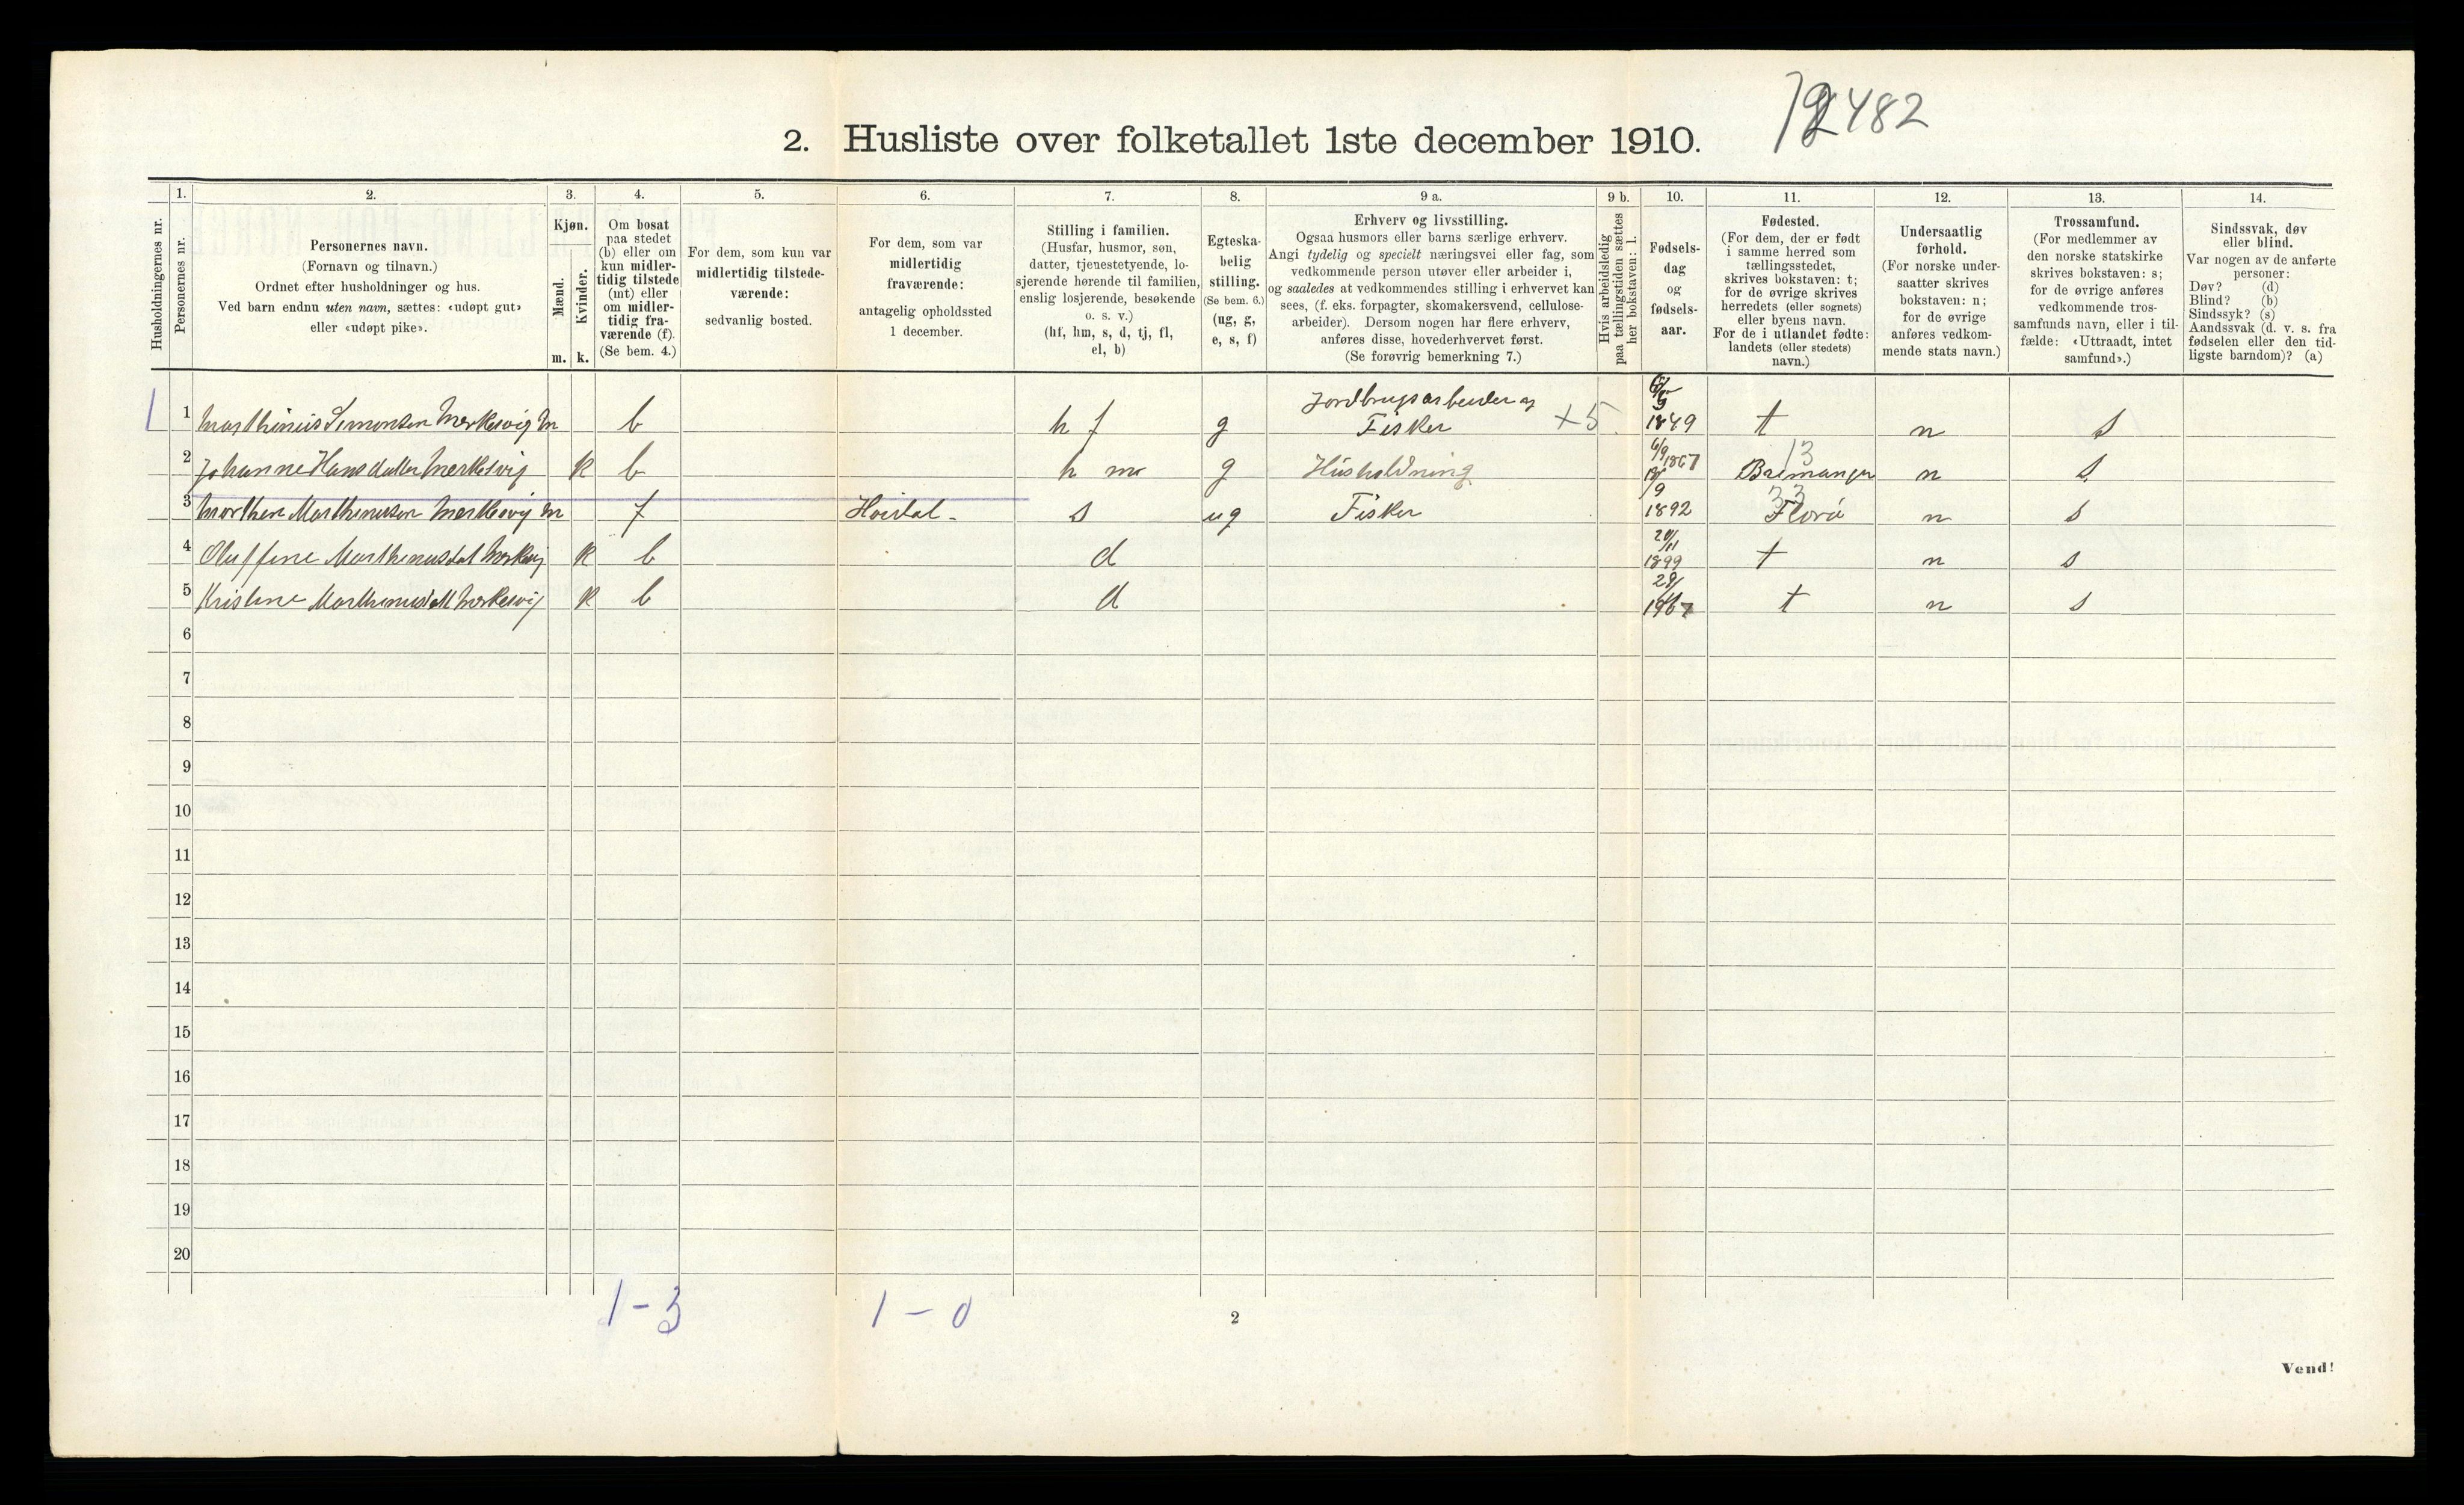 2. Husliste over folketallet 1ste december 1910.
482
Husholdningernes nr.
1.
Personernes nr.
2.
Personernes navn.
(Fornavn og tilnavn.)
Ordnet efter husholdninger og hus.
Ved barn endnu uten navn, sættes: «udøpt gut»
eller «udøpt pike».
3.
Kjøn.
Mænd.
Kvinder.
m. k.
4.
Om bosat
paa stedet
(b) eller om
kun midler-
tidig tilstede
(mt) eller
om midler-
tidig fra-
værende (f).
(Se bem. 4.)
5.
For dem, som kun var
midlertidig tilstede-
værende:
sedvanlig bosted.
6.
For dem, som var
midlertidig
fraværende:
antagelig opholdssted
1 december.
7.
Stilling i familien.
(Husfar, husmor, søn,
datter, tjenestetyende, lo-
sjerende hørende til familien,
enslig losjerende, besøkende
o. s. v.)
(hf, hm, s, d, tj, fl,
el, b)
8.
Egteska-
belig
stilling.
(Se bem. 6.)
(ug, g,
e, s, f)
9 a.
Erhverv og livsstilling.
Ogsaa husmors eller barns særlige erhverv.
Angi tydelig og specielt næringsvei eller fag, som
vedkommende person utøver eller arbeider i,
og saaledes at vedkommendes stilling i erhvervet kan
sees, (f. eks. forpagter, skomakersvend, cellulose-
arbeider). Dersom nogen har flere erhverv,
anføres disse, hovederhvervet først.
(Se forøvrig bemerkning 7.)
9 b.
Hvis arbeidsledig
paa tællingstiden sættes
her bokstaven: l.
10.
Fødsels-
dag
og
fødsels-
aar.
11.
Fødested.
(For dem, der er født
i samme herred som
tællingsstedet,
skrives bokstaven: t;
for de øvrige skrives
herredets (eller sognets)
eller byens navn.
For de i utlandet fødte:
landets (eller stedets)
navn.)
12.
Undersaatlig
forhold.
(For norske under-
saatter skrives
bokstaven: n;
for de øvrige
anføres vedkom-
mende stats navn.)
13.
Trossamfund.
(For medlemmer av
den norske statskirke
skrives bokstaven: s;
for de øvrige anføres
vedkommende tros-
samfunds navn, eller i til-
fælde: «Uttraadt, intet
samfund».)
14.
Sindssvak, døv
eller blind.
Var nogen av de anførte
personer:
Døv? (d)
Blind? (b)
Sindssyk? (s)
Aandssvak (d. v. s. fra
fødselen eller den tid-
ligste barndom)? (a)
1 Marthinus Simonsen Merkesvig m b h f g Jordbrugsarbeider og Fisker +5 1849 t n s
2 Johanne Hansdatter Merkesvig k b h m g Husholdning 6/9 1867 Bremanger 13 n s
3 Morthen Marthinussen Merkesvig m f Hovdal s ug Fisker 1892 Florø 33 n s
4 Oluffine Marthinusdat Merkesvig k b d 20/11 1899 t n s
5 Kristine Marthinusdatt Merkesvig k b d t n s
6
7
8
9
10
11
12
13
14
15
16
17
18
19
20
1 - 3 1 - 0
2
Vend!